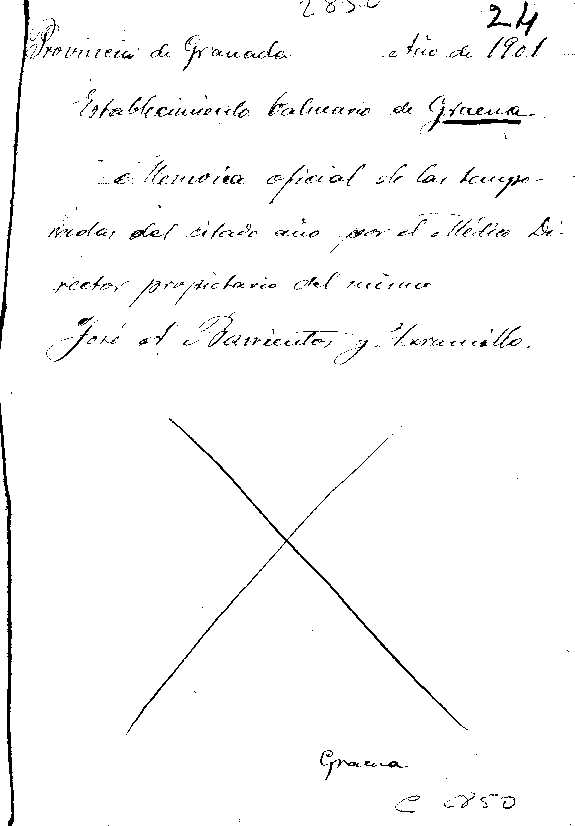 2850
24
Provincia de Granada Año de 1901
Establecimiento balneario de Graena.
Memoria oficial de las tempo-
radas del citado año por el Médico Di-
rector propietario del mismo
José A. Barrientos y Jaramillo.
Graena
C 2850